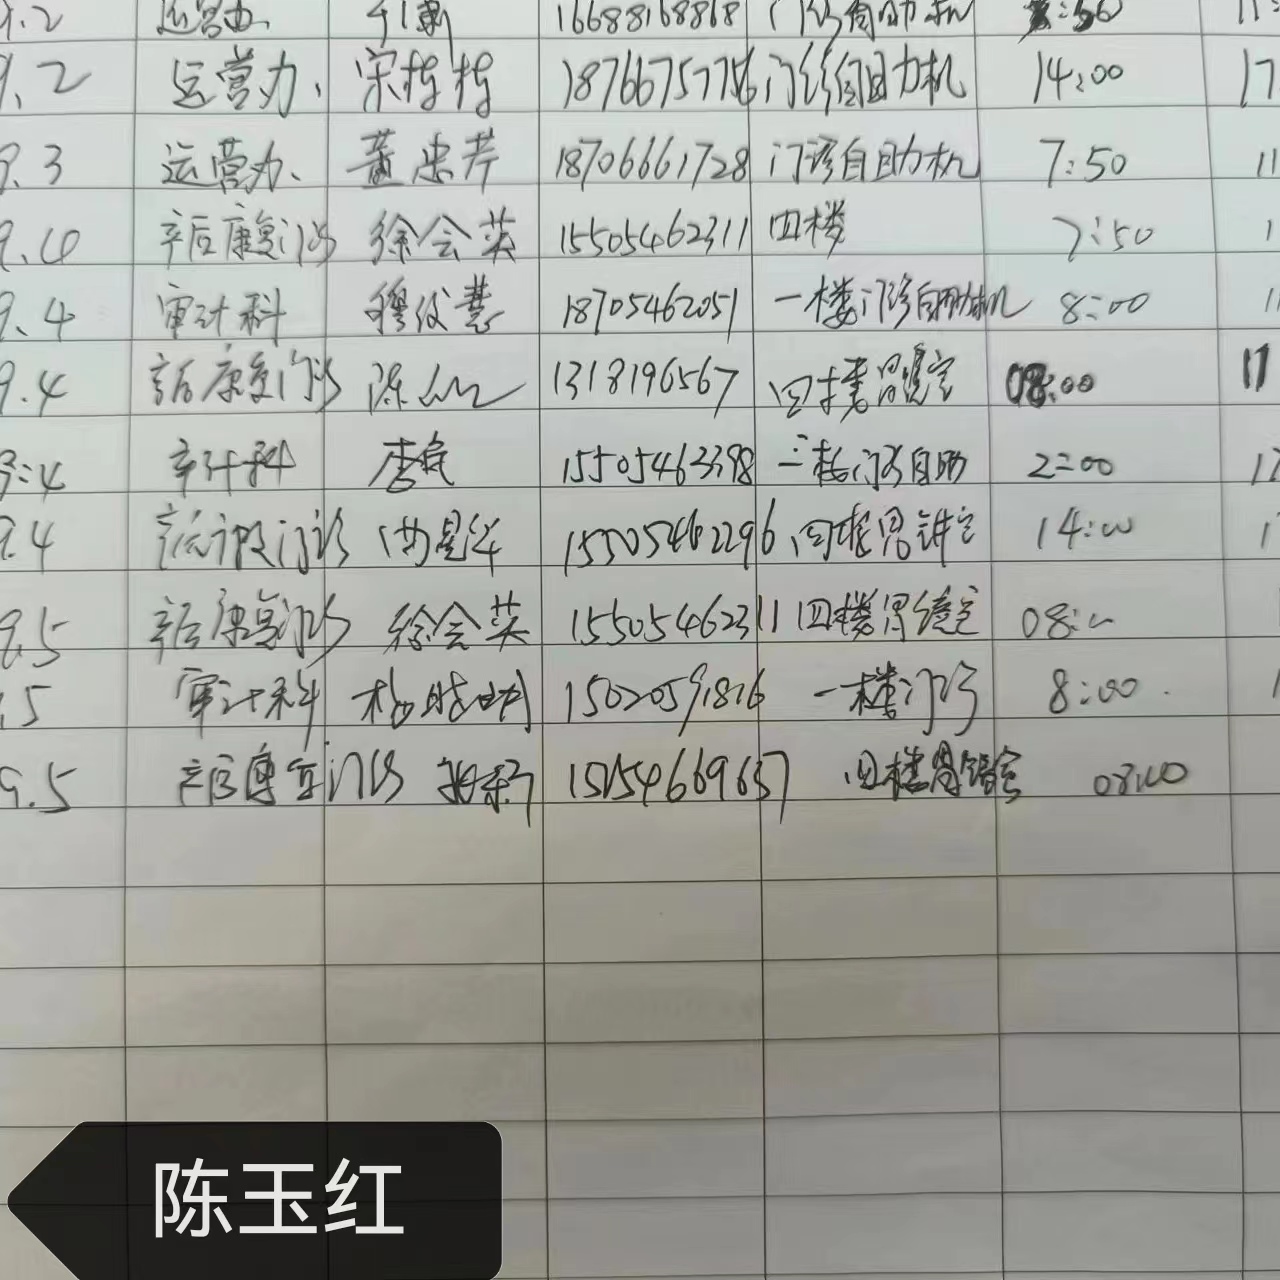 9.2 运营办 16688168868 门诊自助机 11:
9.2 运营办、 宋梅梅 18766757756 门诊自助机 14:00 17
9.3 运营办、 董忠芹 18706661728 门诊自助机 7:50 11
9.4 卒后康复门诊 徐会英 15505462311 四楼 7:50 1
9.4 审计科 穆俊慧 18705462051 一楼门诊自助机 8:00 11
9.4 卒后康复门诊 陈 1318196567 四楼胃镜室 08:00 11
9:4 审计科 李民 15505463398 三楼门诊自助 2:00 17
9.4 门诊 15505462296 四楼胃镜室 14:00 1
9.5 卒后康复门诊 徐会英 15505462311 四楼胃镜室 08:00
.5 审计科 杨晓明 15020591816 一楼门诊 8:00 1
9.5 卒后康复门诊 15154669637 四楼胃镜室 08:00
陈玉红